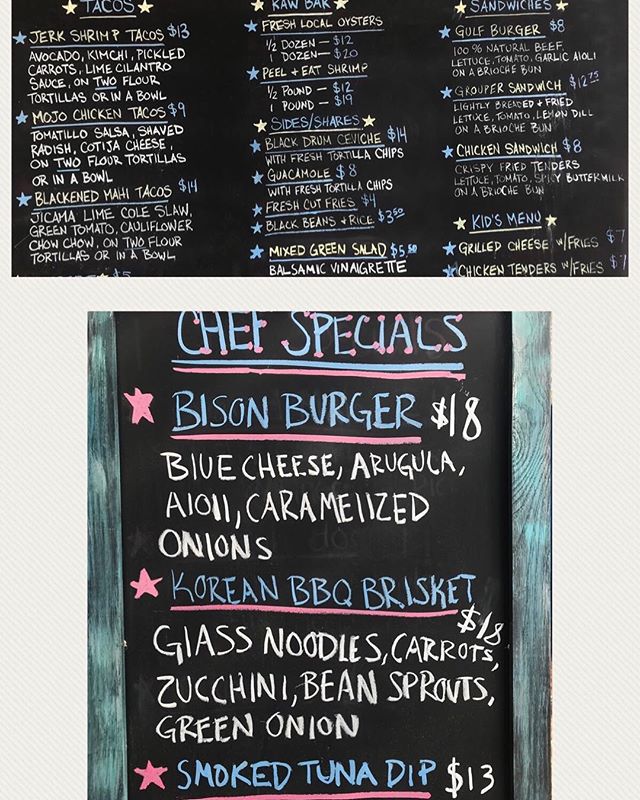 TACOS
JERK SHRIMP TACOS $13
AVOCADO, KIMCHI, PICKLED
CARROTS, LIME CILANTRO
SAUCE, ON TWO FLOUR
TORTILLAS OR IN A BOWL
MOJO CHICKEN TACOS $9
TOMATILLO SALSA, SHAVED
RADISH, COTIJA CHEESE,
ON TWO FLOUR TORTILLAS
OR IN A BOWL
BLACKENED MAHI TACOS $14
JICAMA LIME COLE SLAW,
GREEN TOMATO, CAULIFLOWER
CHOW CHOW, ON TWO FLOUR
TORTILLAS OR IN A BOWL
$5
RAW BAR
FRESH LOCAL OYSTERS
1/2 DOZEN — $12
1 DOZEN — $20
PEEL + EAT SHRIMP
1/2 POUND — $12
1 POUND — $19
SIDES/SHARES
BLACK DRUM CEVICHE $14
WITH FRESH TORTILLA CHIPS
GUACAMOLE $8
WITH FRESH TORTILLA CHIPS
FRESH CUT FRIES $4
BLACK BEANS + RICE $3.50
MIXED GREEN SALAD $5.50
BALSAMIC VINAIGRETTE
SANDWICHES
GULF BURGER $8
100% NATURAL BEEF,
LETTUCE, TOMATO, GARLIC AIOLI
ON A BRIOCHE BUN
GROUPER SANDWICH $12.75
LIGHTLY BREADED + FRIED
LETTUCE, TOMATO, LEMON DILL
ON A BRIOCHE BUN
CHICKEN SANDWICH $8
CRISPY FRIED TENDERS
LETTUCE, TOMATO, SPICY BUTTERMILK
ON A BRIOCHE BUN
KID'S MENU
GRILLED CHEESE W/FRIES $7
CHICKEN TENDERS W/FRIES $7
CHEF SPECIALS
BISON BURGER $18
BLUE CHEESE, ARUGULA,
AIOLI, CARAMELIZED
ONIONS
KOREAN BBQ BRISKET
$18
GLASS NOODLES, CARROTS,
ZUCCHINI, BEAN SPROUTS,
GREEN ONION
SMOKED TUNA DIP $13